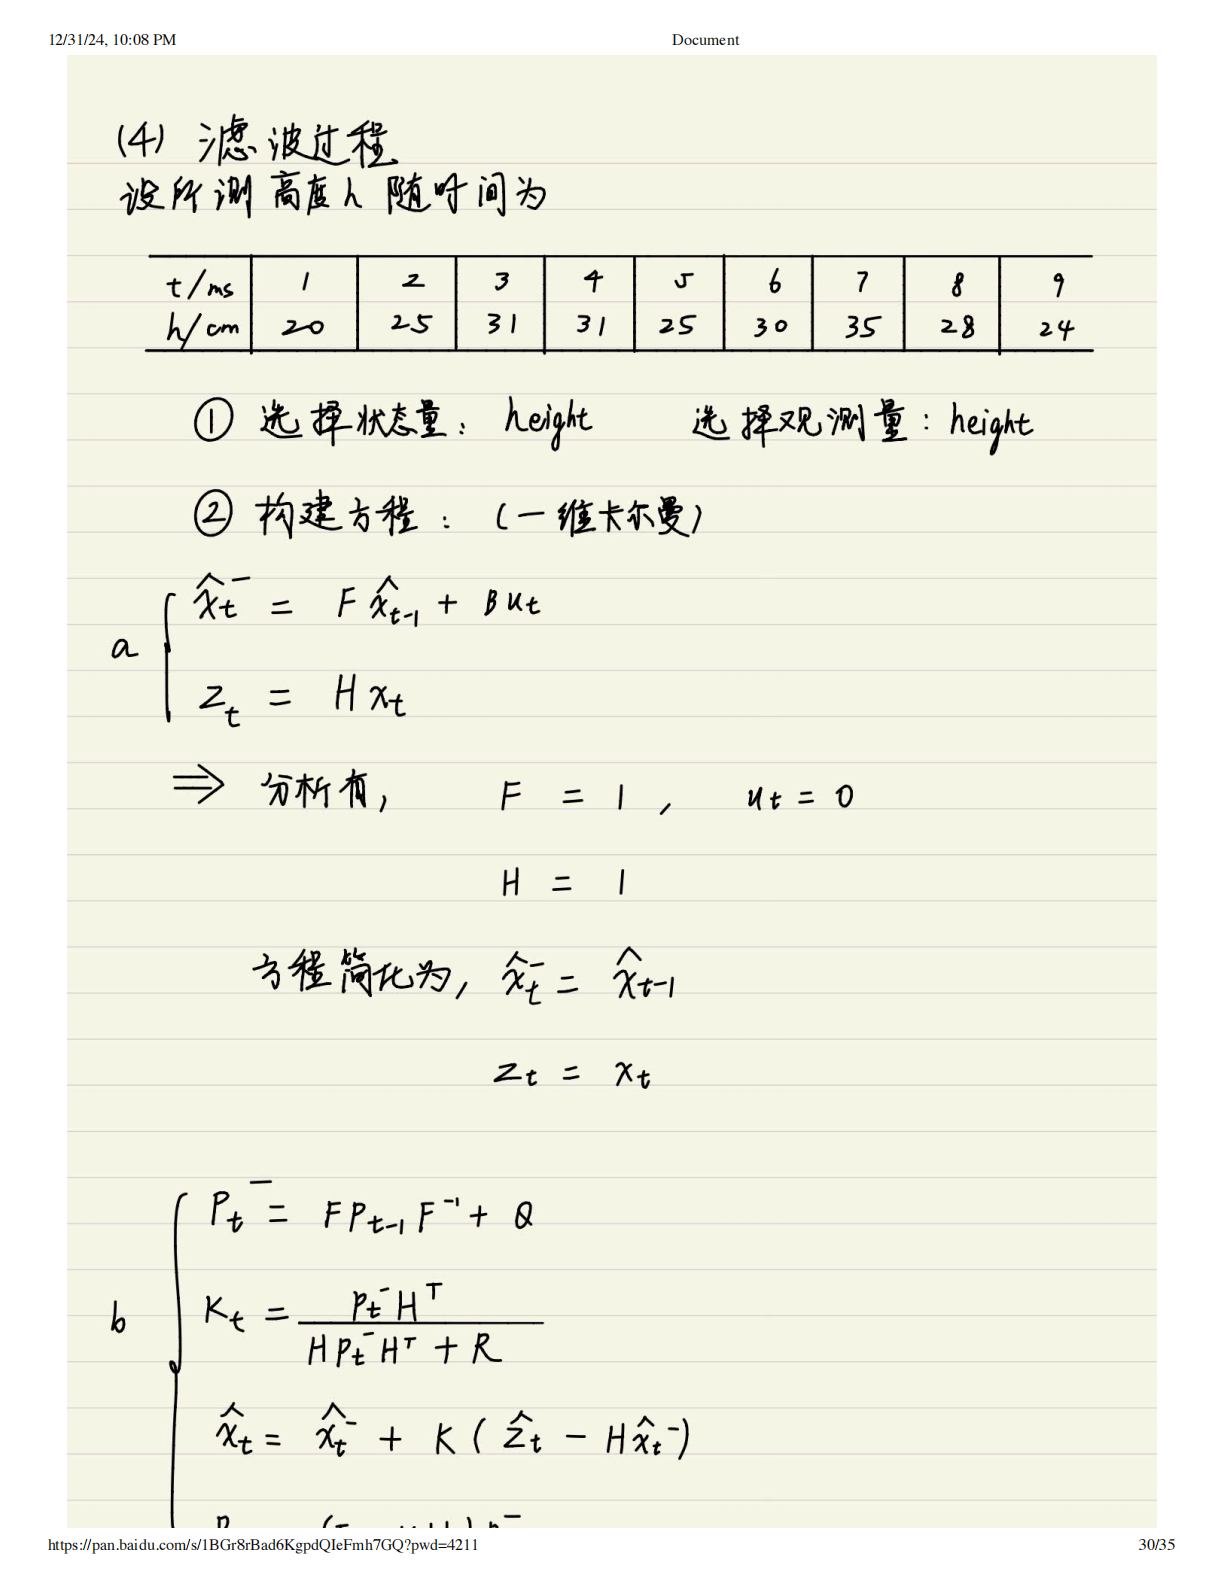 12/31/24, 10:08 PM Document
(4) 滤波过程
设所测高度h随时间为
t/ms 1 2 3 4 5 6 7 8 9
h/cm 20 25 31 31 25 30 35 28 24
① 选择状态量: height 选择观测量: height
② 构建方程: (一维卡尔曼)
x̂ₜ⁻ = F x̂ₜ₋₁ + Buₜ
a
zₜ = Hxₜ
⇒ 分析有, F = 1, uₜ = 0
H = 1
方程简化为, x̂ₜ⁻ = x̂ₜ₋₁
zₜ = xₜ
Pₜ⁻ = FPₜ₋₁F⁻¹ + Q
b Kₜ = Pₜ⁻Hᵀ / (HPₜ⁻Hᵀ + R)
x̂ₜ = x̂ₜ⁻ + K(ẑₜ − Hx̂ₜ⁻)
https://pan.baidu.com/s/1BGr8rBad6KgpdQIeFmh7GQ?pwd=4211 30/35